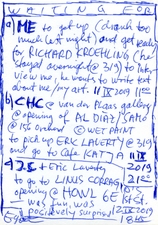 WAITING FOR
a) ME to get up (drank too
much last night) and get ready
for RICHARD KROEHLING (he
stayed overnight @ 319) to inter
view me, he wants to write art
about me/my art. 11 IX 2019 11:00
b) CHC @ van der Plas gallery
@ opening of AL DIAZ/SAMO
@ 156 Orchard © WET PAINT
to pick up ERIC LAVERTY @ 319
and go to Cafe KATJA 11 IX
2019
to go to LINUS CORRAG
opening @ HOWL 6E 1st
was fun, was
positively surprised 2019